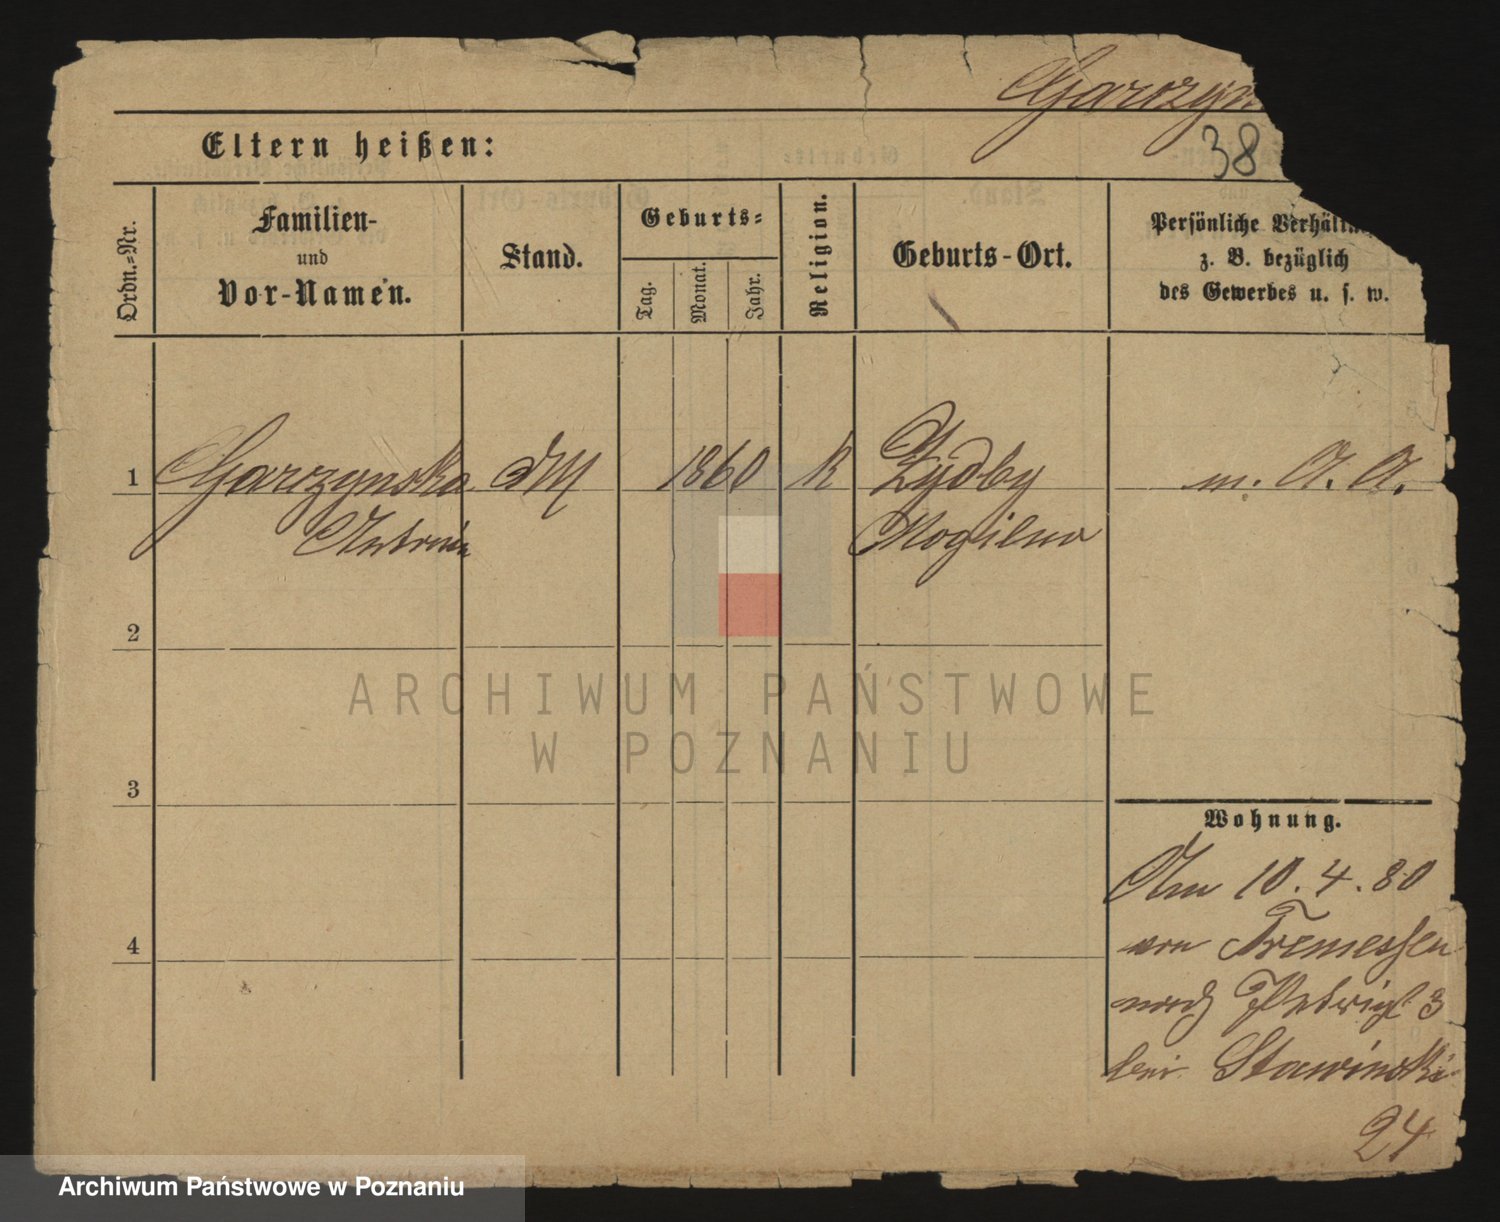 Garczyn
38
Eltern heißen:
Ordn.-Nr.
Familien-
und
Vor-Namen.
Stand.
Geburts-
Tag.
Monat.
Jahr.
Religion.
Geburts-Ort.
Persönliche
z. B. bezüglich
des Gewerbes u. s. w.
1 Garczynska dM 1860 k m. A. A.
Mogilno
2
3
4
Wohnung.
Am 10.4.80
von Tremessen
nach 3
bei Stawinski
24
ARCHIWUM PAŃSTWOWE
W POZNANIU
Archiwum Państwowe w Poznaniu